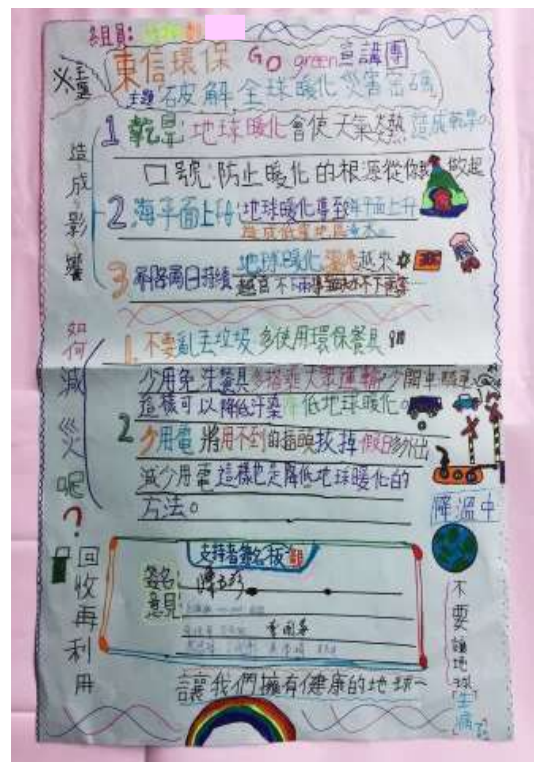 組員：
東信環保 Go green宣講團
主題 破解全球暖化災害密碼
造成影響
1 乾旱：地球暖化會使天氣炎熱 造成乾旱。
口號：防止暖化的根源從你我做起
2.海平面上升：地球暖化導致海平面上升
造成低窪地區淹水。
3 降雨日持續
地球暖化 越來
如何減災呢？
1.不要亂丟垃圾 多使用環保餐具
少用免洗餐具 多搭乘大眾運輸 少開車騎車
這樣可以降低汙染 降低地球暖化。
2 少用電 將用不到的插頭拔掉 假日多外出
減少用電 這樣也是降低地球暖化的
方法。
降溫中
回收再利用
支持者簽名板
簽名：
意見：
不要讓地球「生病了」
讓我們擁有健康的地球~